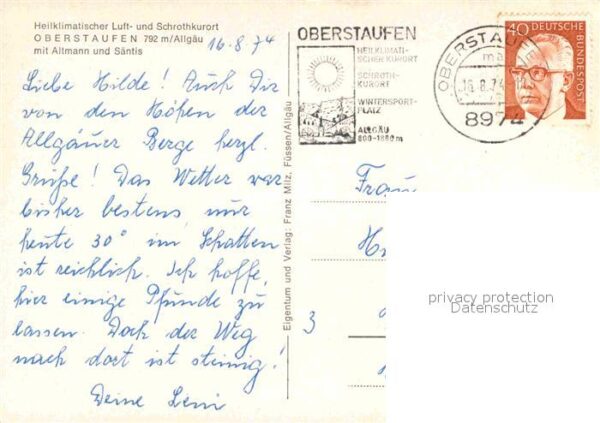 Heilklimatischer Luft- und Schrothkurort
OBERSTAUFEN 792 m/Allgäu
mit Altmann und Säntis
16.8.74
Liebe Hilde! Auch Dir
von den Höhen der
Allgäuer Berge herzl.
Grüße! Das Wetter war
bisher bestens, nur
heute 30° im Schatten
ist reichlich. Ich hoffe,
hier einige Pfunde zu
lassen. Doch der Weg
nach dort ist steinig!
Deine Leni
Eigentum und Verlag: Franz Milz, Füssen/Allgäu
OBERSTAUFEN
HEILKLIMATI-
SCHER KURORT
SCHROTH-
KURORT
WINTERSPORT-
PLATZ
ALLGÄU
800-1880 m
OBERSTAUFEN
ma
16.8.74
8974
40 DEUTSCHE
BUNDESPOST
Frau
H
3
privacy protection
Datenschutz